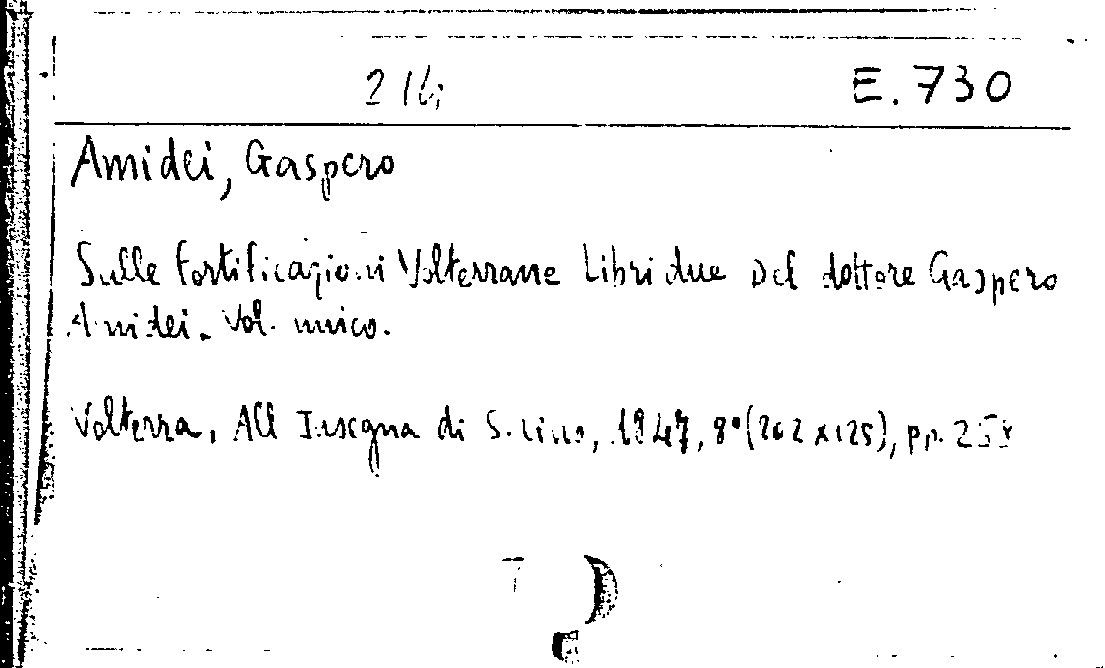 E. 730
Amidei, Gaspero
Sulle Fortificazioni Volterrane Libri due Del dottore Gaspero
Amidei. Vol. unico.
Volterra, All Insegna di S. Lino, 1947, 8° (202 x 125), pp.